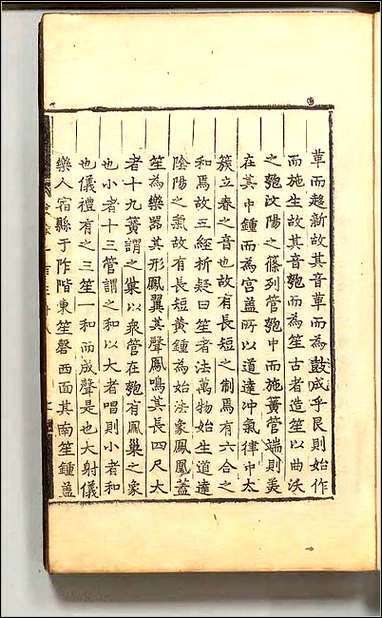 草而趨新故其音草而為鼓成乎艮則始作
而施生故其音匏而為笙古者造笙以曲沃
之匏汶陽之篠列管匏中而施簧管端則美
在其中鍾而為宮蓋所以道達冲氣律中太
簇立春之音也故有長短之制焉有六合之
和焉故三經析疑曰笙者法萬物始生道達
陰陽之氣故有長短黃鍾為始法象鳳凰蓋
笙為樂器其形鳳翼其聲鳳鳴其長四尺大
者十九簧謂之巢以衆管在匏有鳳巢之象
也小者十三管謂之和以大者唱則小者和
也儀禮有之三笙一和而成聲是也大射儀
樂人宿縣于阼階東笙磬西面其南笙鍾蓋